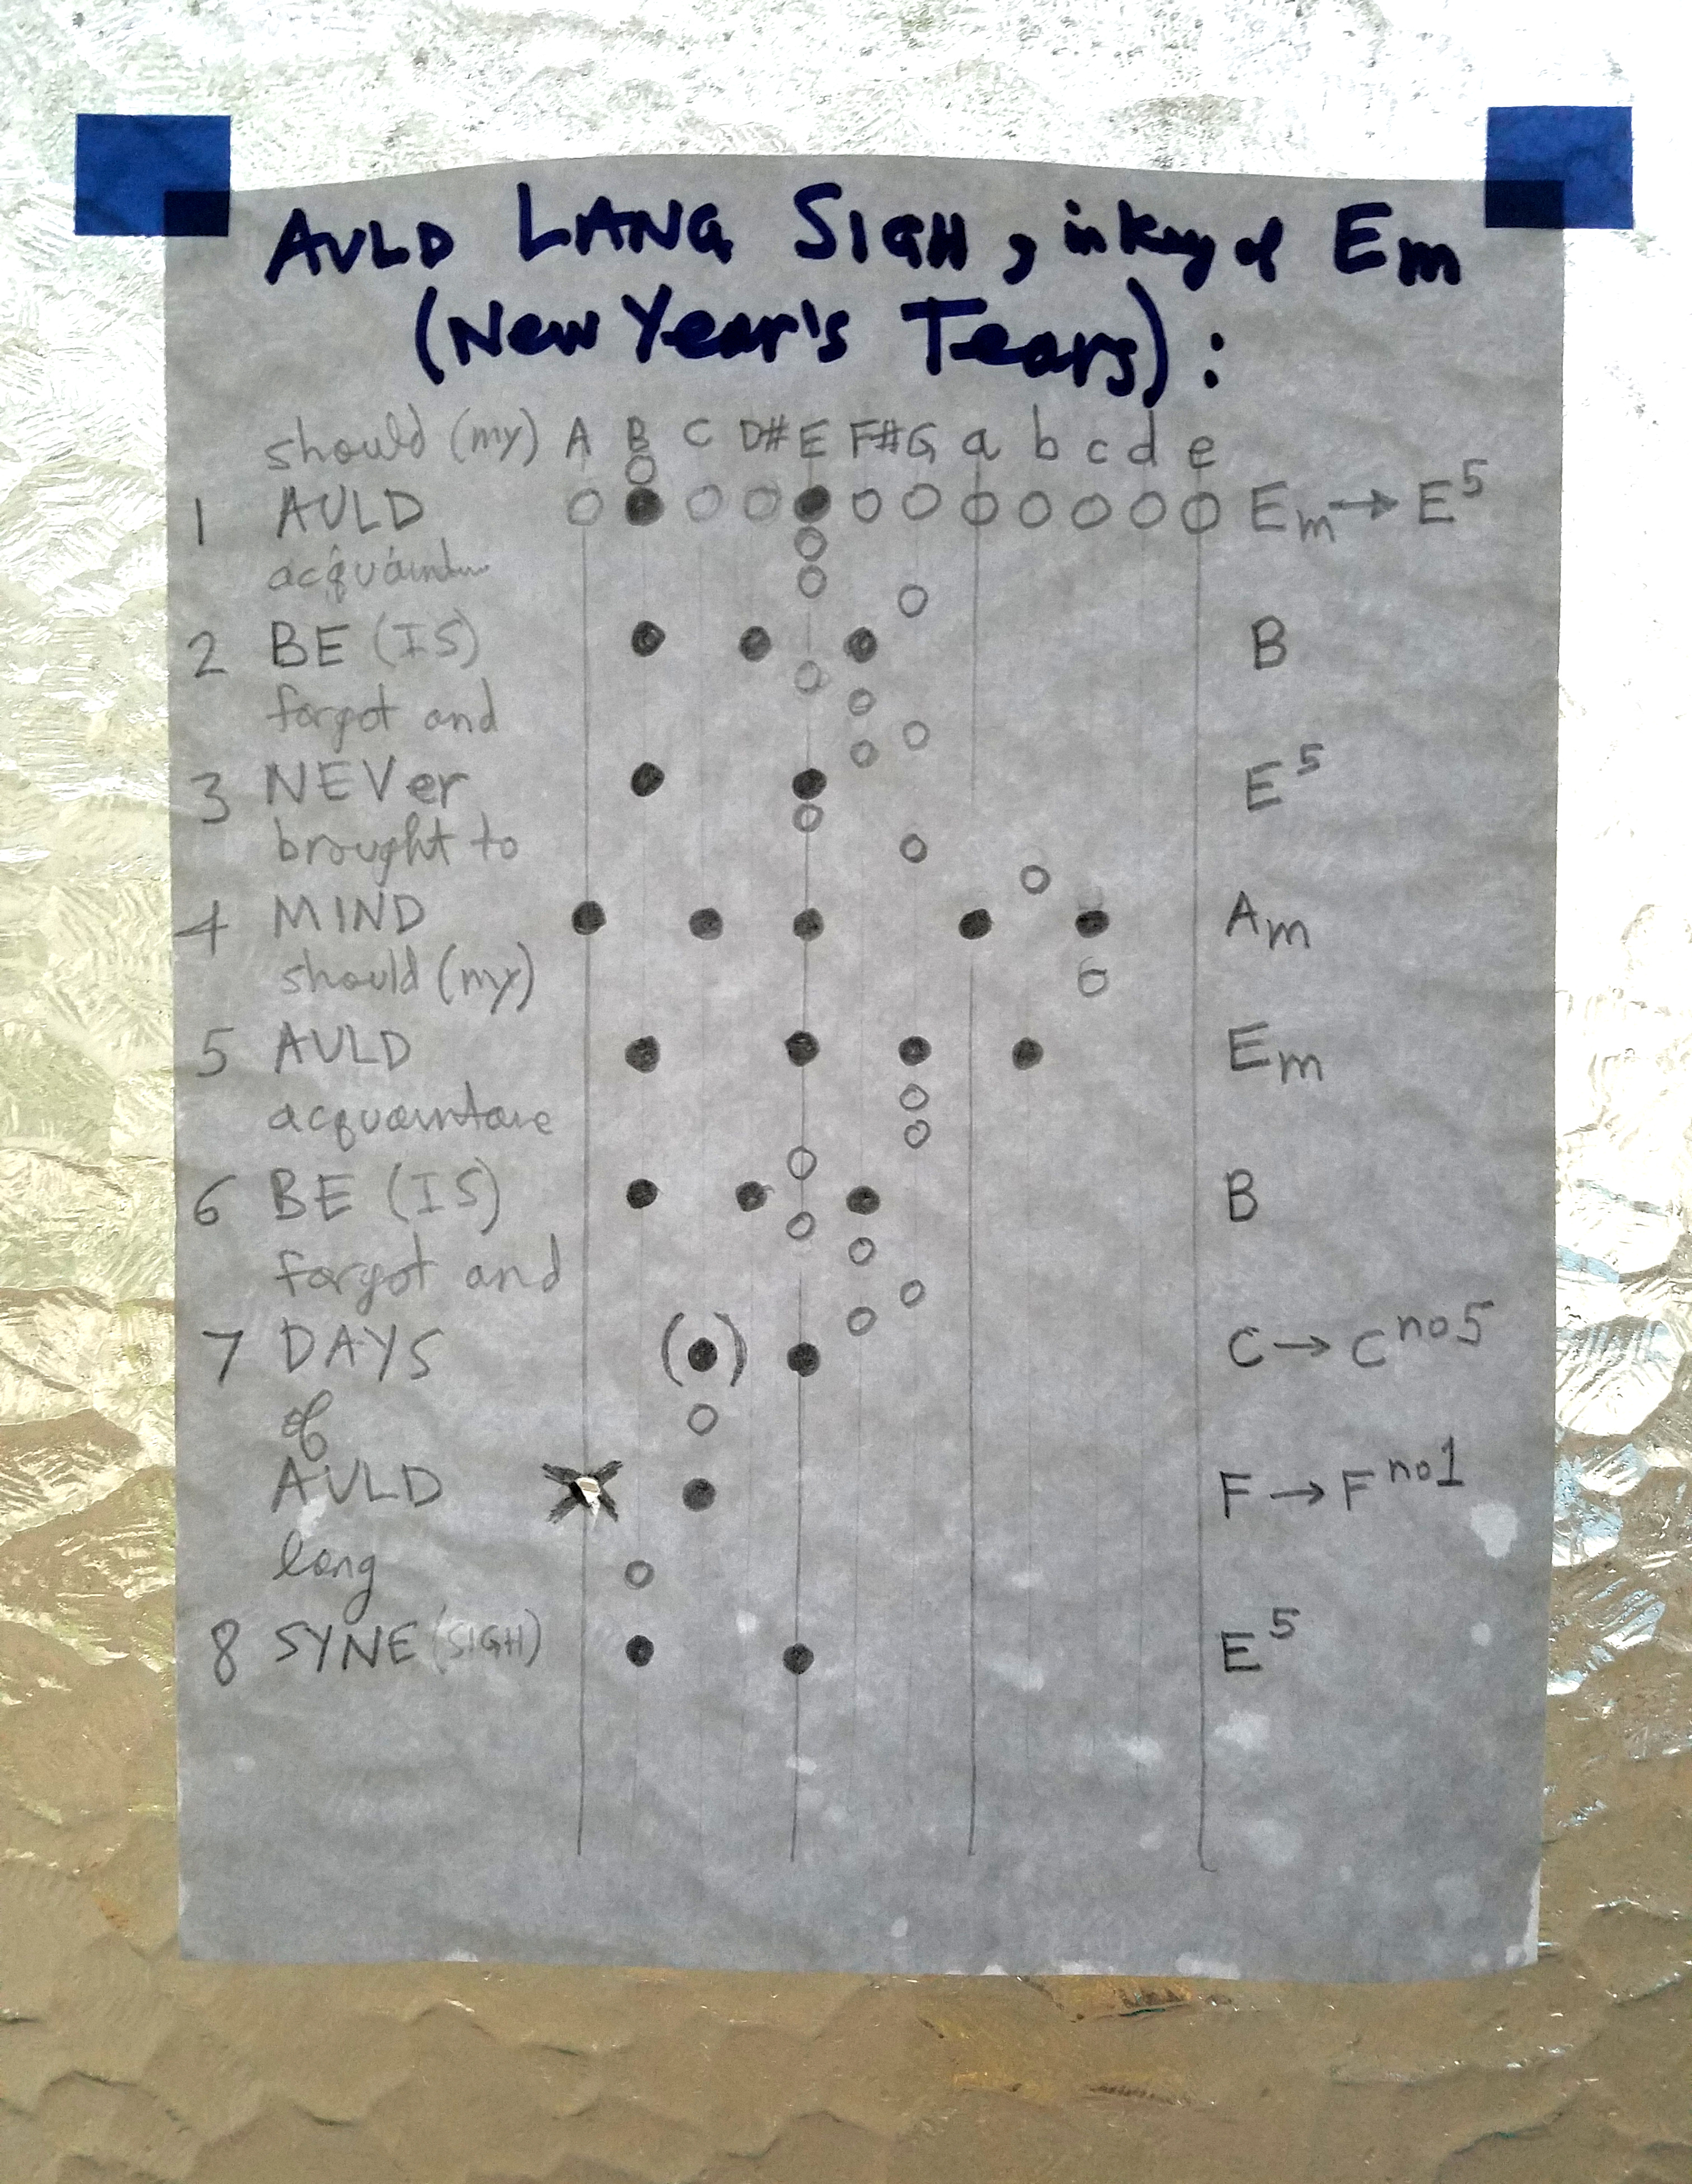 AULD LANG SIGH, in key of Em
(New Year's Tears):
should (my) A B C D# E F# G a b c d e
1 AULD Em → E5
acquaintance
2 BE (IS) B
forgot and
3 NEVer E5
brought to
4 MIND Am
should (my)
5 AULD Em
acquaintance
6 BE (IS) B
forgot and
7 DAYS ( ) C → C no5
of
AULD F → F no1
long
8 SYNE (SIGH) E5